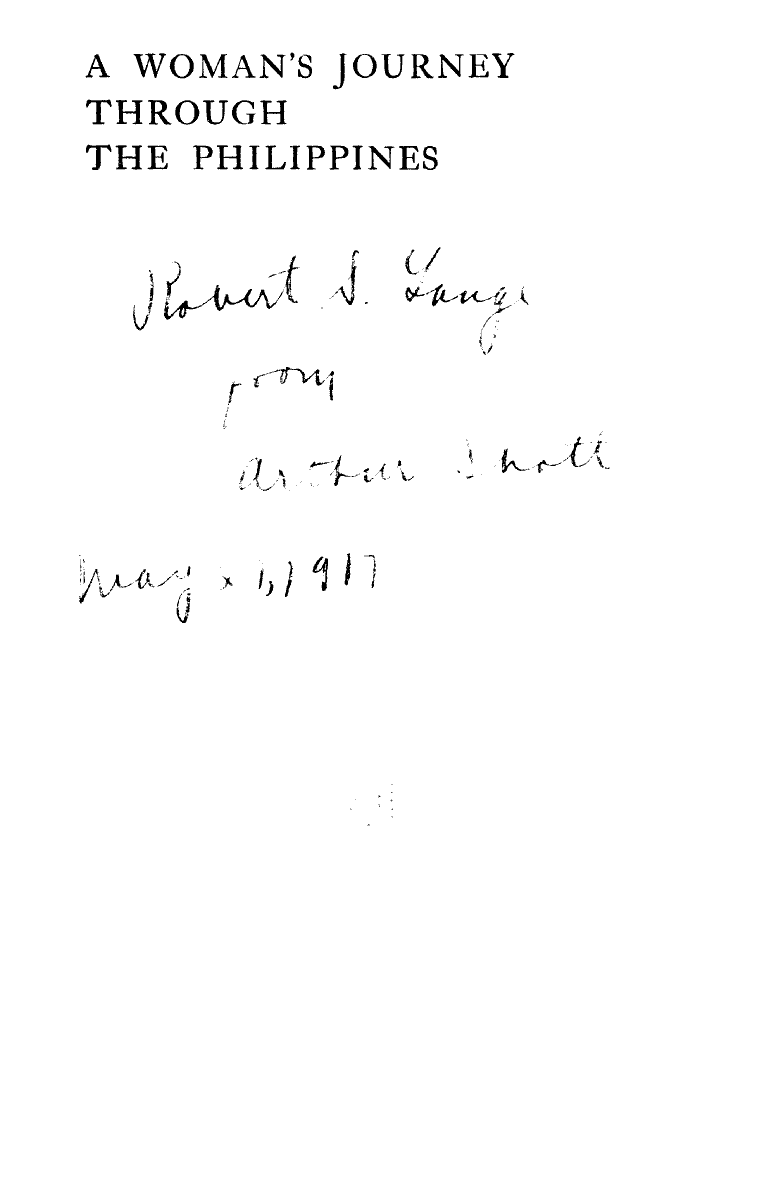 A WOMAN'S JOURNEY
THROUGH
THE PHILIPPINES
Robert S.
from
Arthur
May 1, 1917